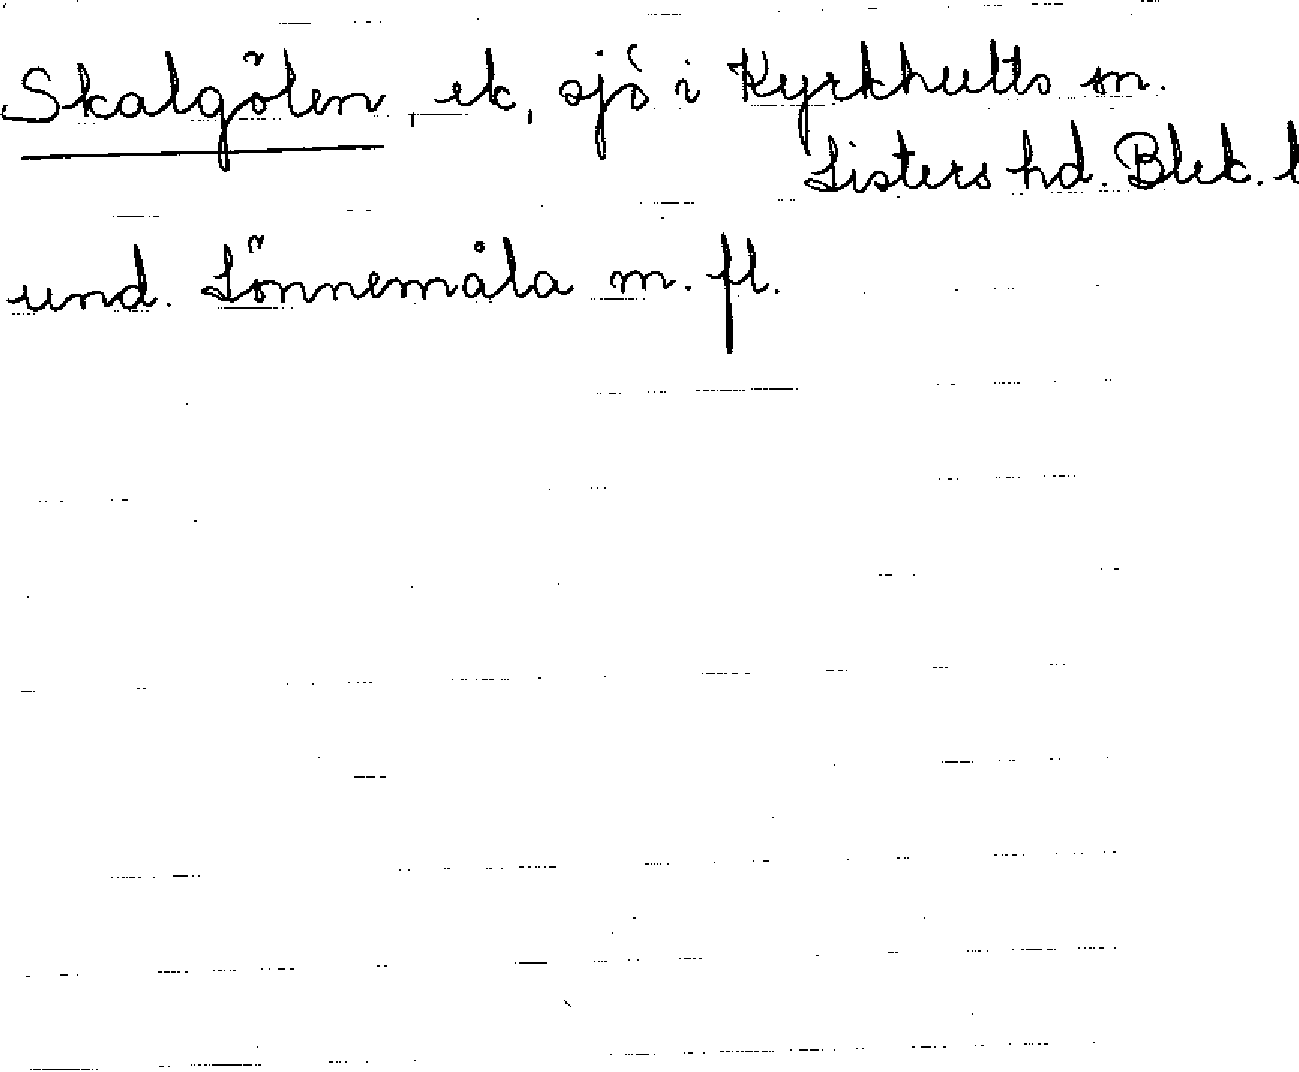 Skalgölen, ek, sjö i Kyrkhults sn.
Listers hd. Blek. l
und. Lönnemåla m. fl.